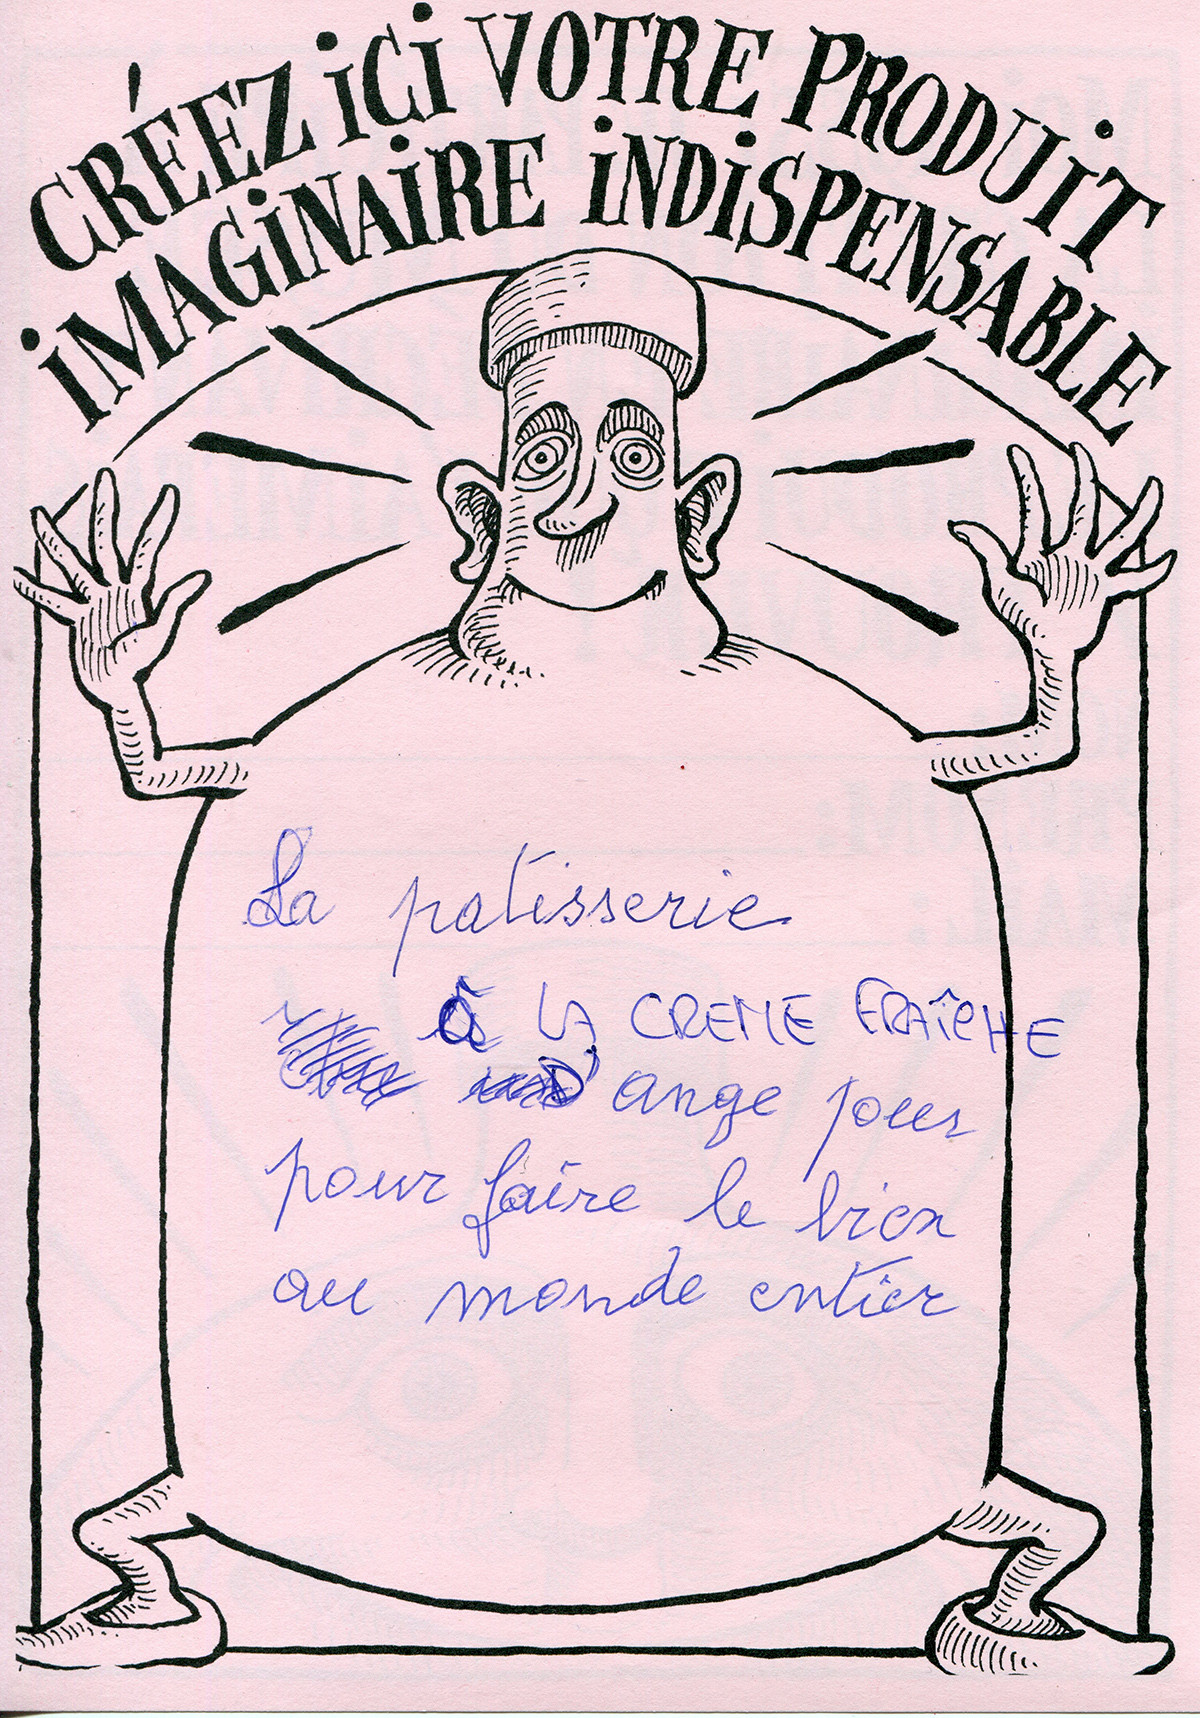 CRÉEZ iCi VOTRE PRODUiT
iMAGiNAiRE iNDiSPENSABLE
La patisserie
à LA CREME FRAîCHE
D'ange pour
pour faire le bien
au monde entier